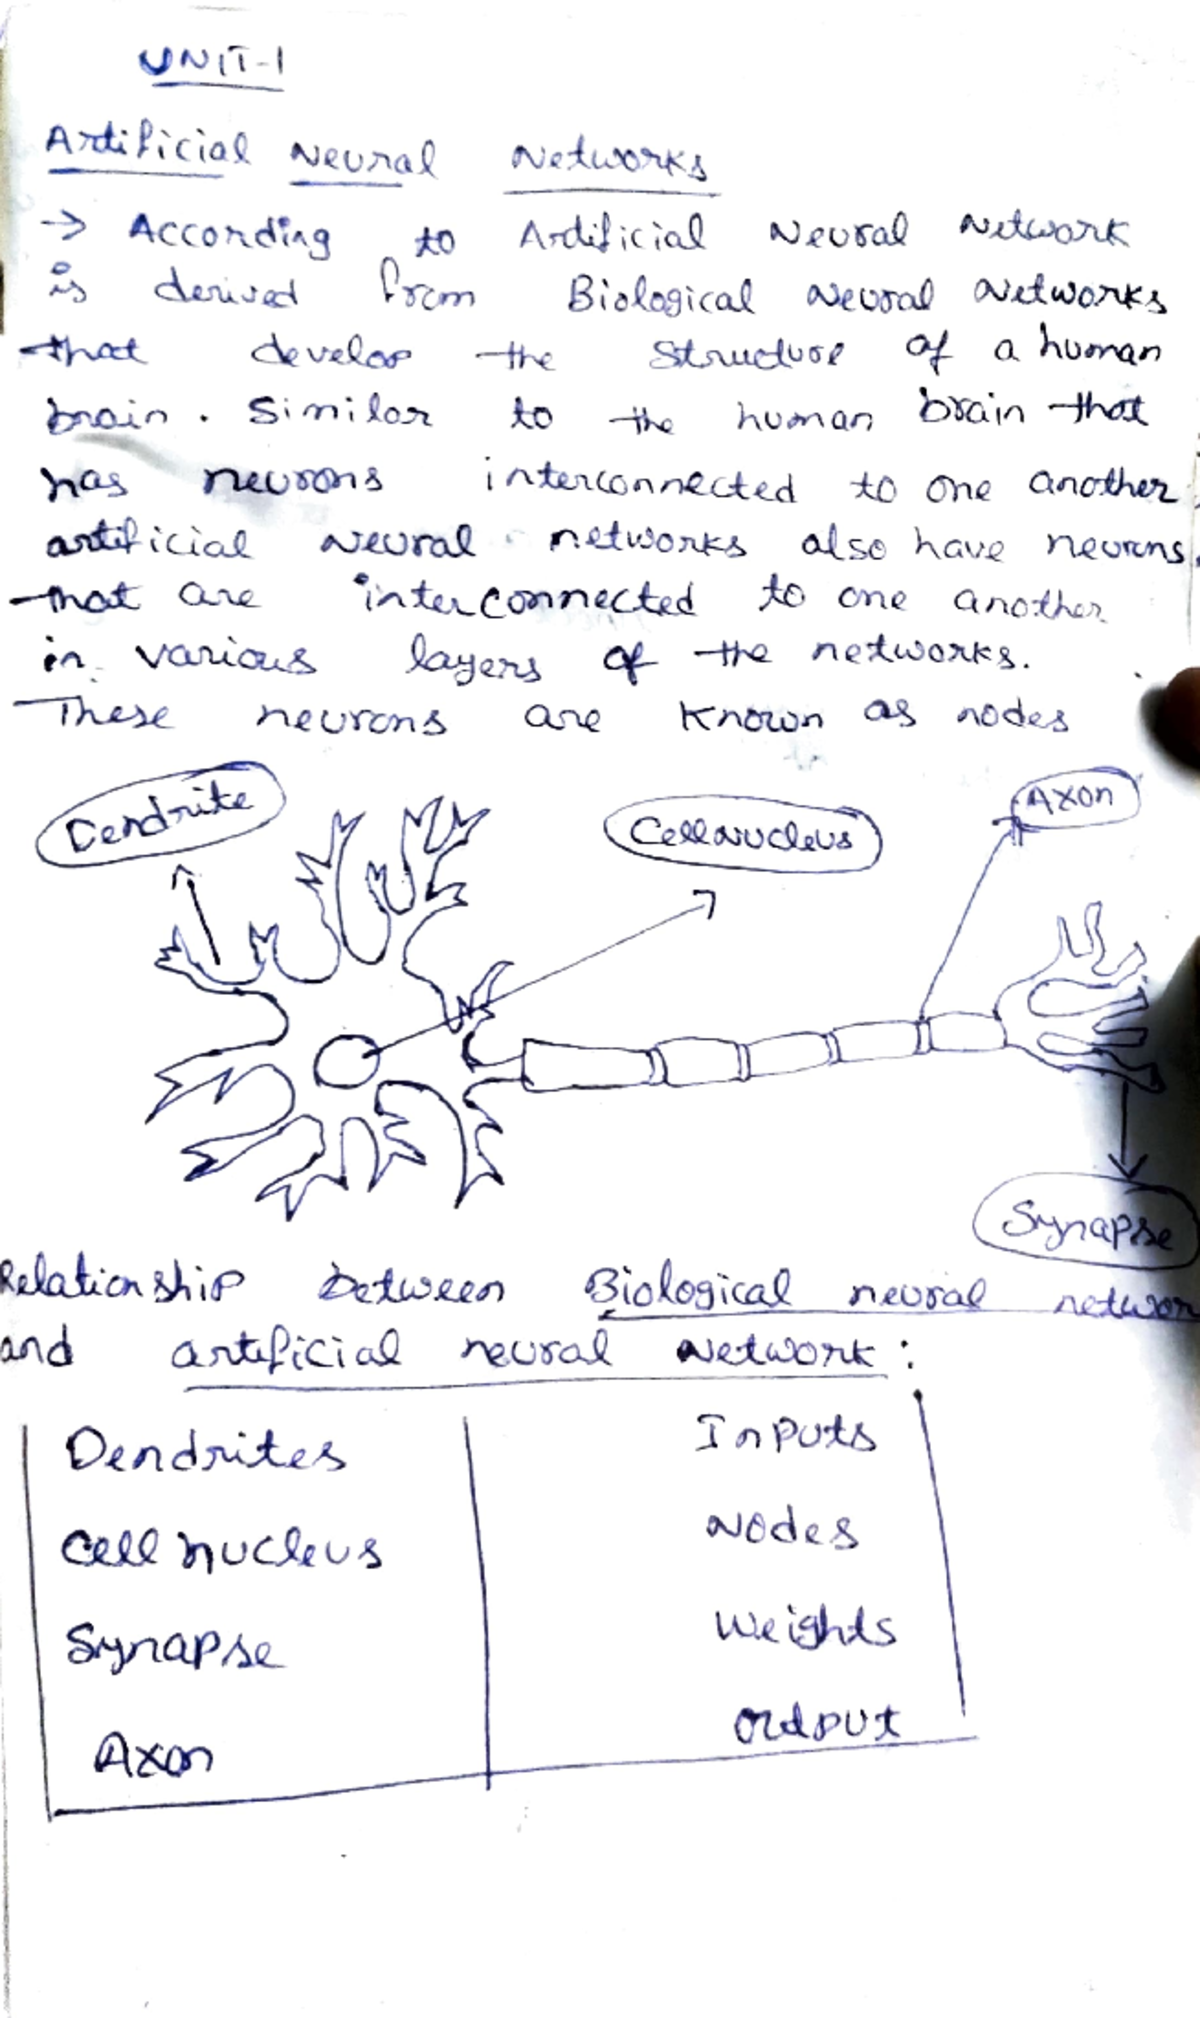 UNIT-1
Artificial Neural Networks
→ According to Artificial Neural Network
is derived from Biological Neural Networks
that develop the structure of a human
brain. Similar to the human brain that
has neurons interconnected to one another,
artificial neural networks also have neurons
that are interconnected to one another
in various layers of the networks.
These neurons are known as nodes
Dendrite
Cell nucleus
Axon
Synapse
Relationship between Biological neural networ
and artificial neural network :
Dendrites Inputs
Cell nucleus Nodes
Synapse Weights
Axon Output